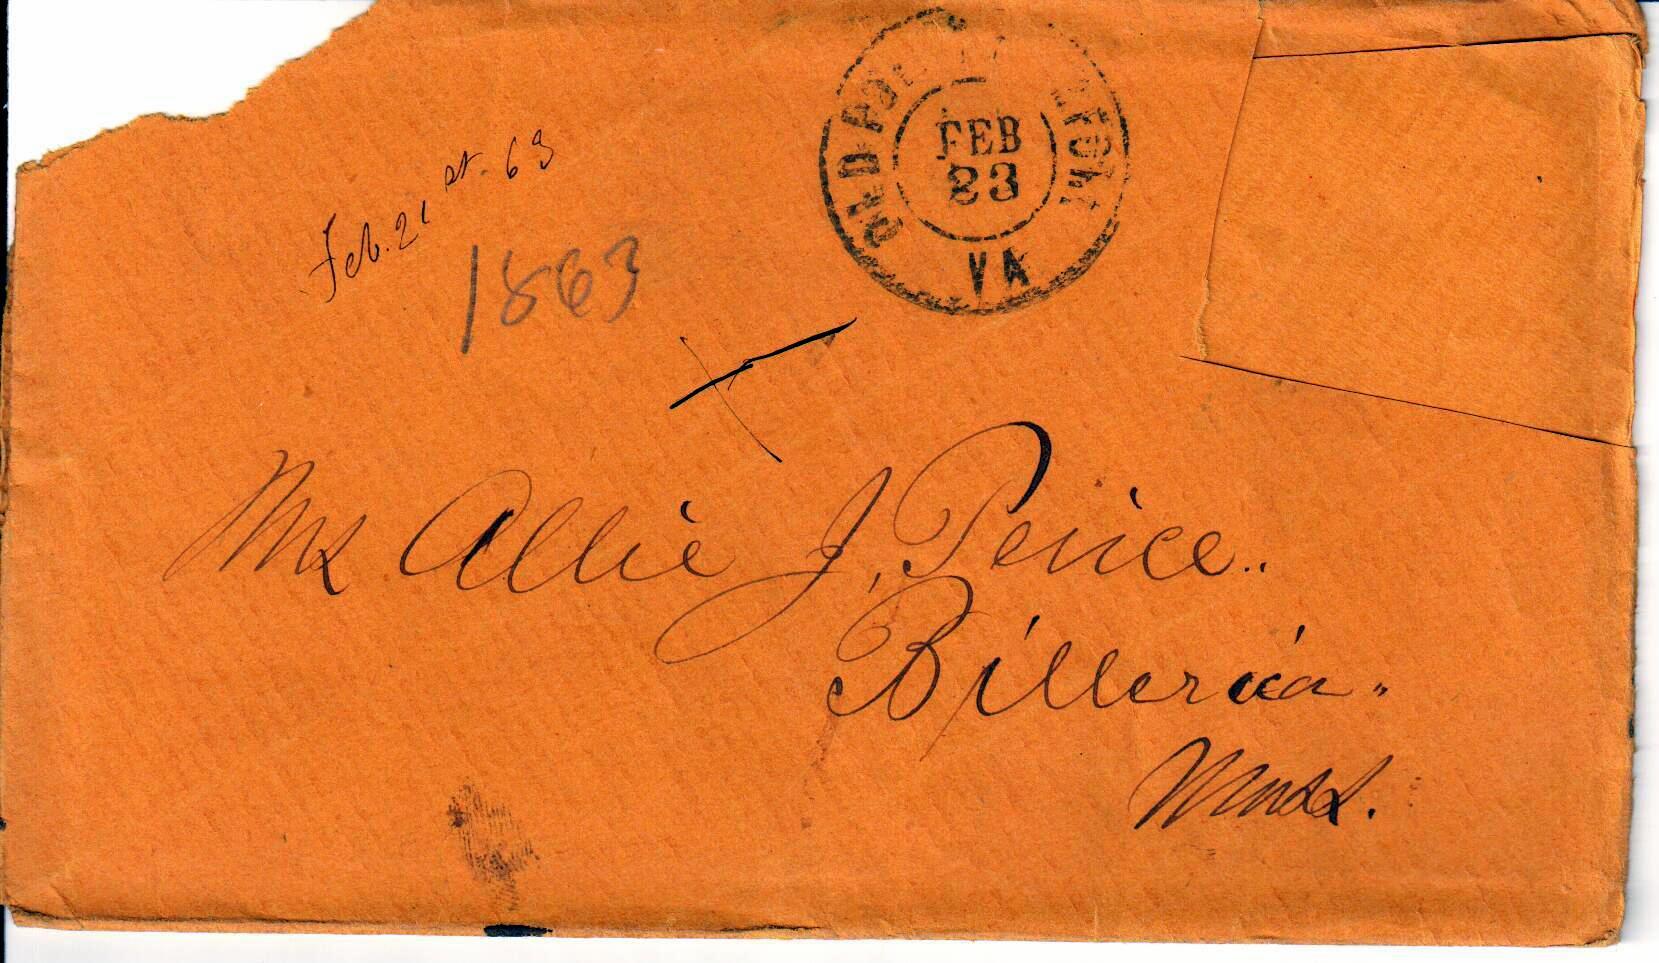 Feb. 21st. 63
1863
OLD POINT
FEB
23
VA
Mrs Allie J. Peirce..
Billerica.
Mass.